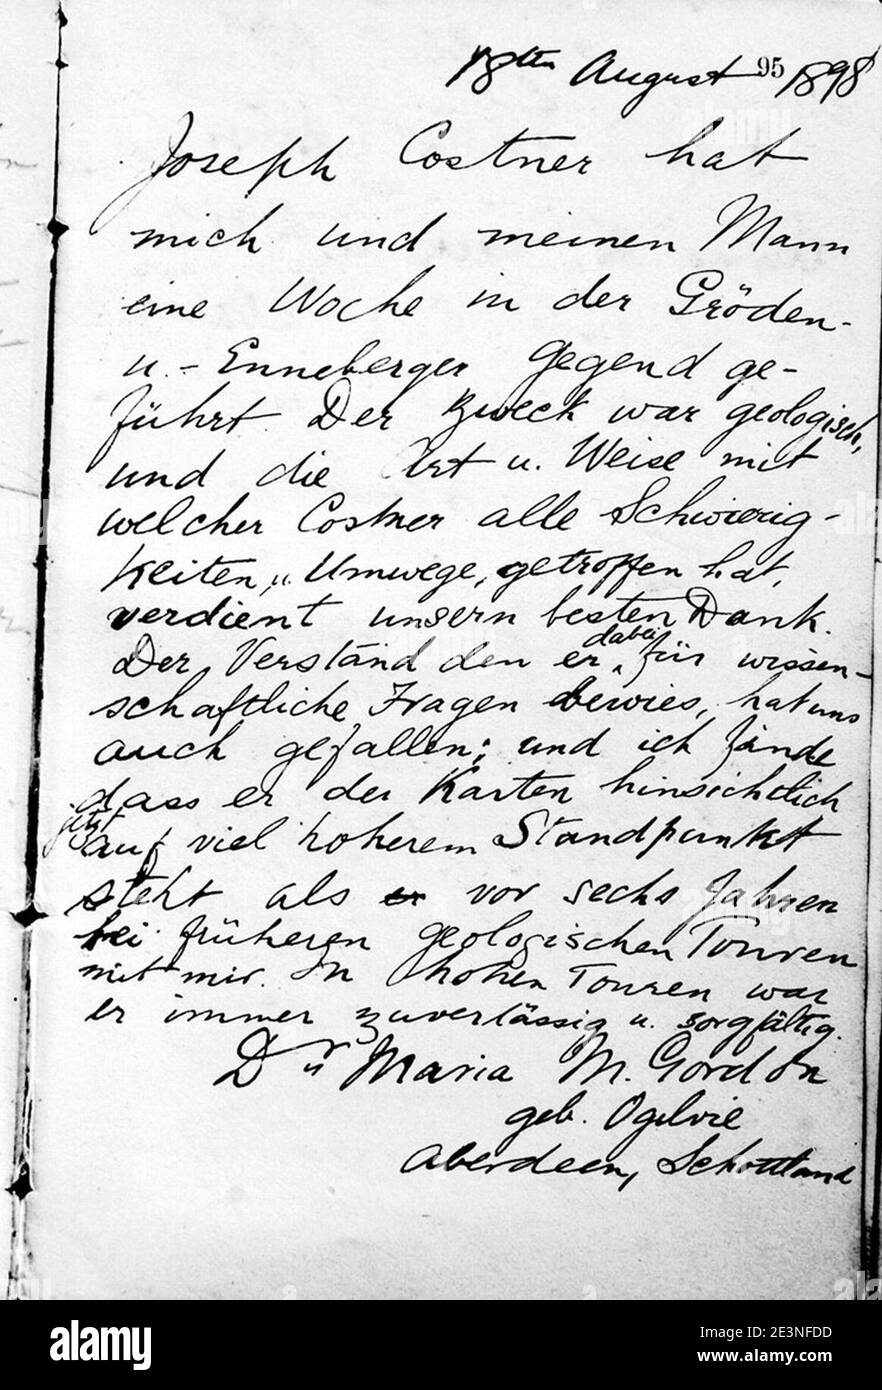 18ten August 95 1898
Joseph Costner hat
mich und meinen Mann
eine Woche in der Gröden-
u.- Enneberger Gegend ge-
führt. Der Zweck war geologisch,
und die Art u. Weise mit
welcher Costner alle Schwierig-
keiten, u. Umwege, getroffen hat,
verdient unsern besten Dank.
Der Verständ den er dabei für wissen-
schaftliche Fragen bewies, hat uns
auch gefallen; und ich fände
dass er der Karten hinsichtlich
jetzt auf viel hoherem Standpunkt
steht als er vor sechs Jahren
bei früheren geologischen Touren
mit mir. In hohen Touren war
er immer zuverlässig u. sorgfältig.
Dr Maria M. Gordon
geb. Ogilvie
Aberdeen, Schottland
alamy
Image ID: 2E3NFDD
www.alamy.com